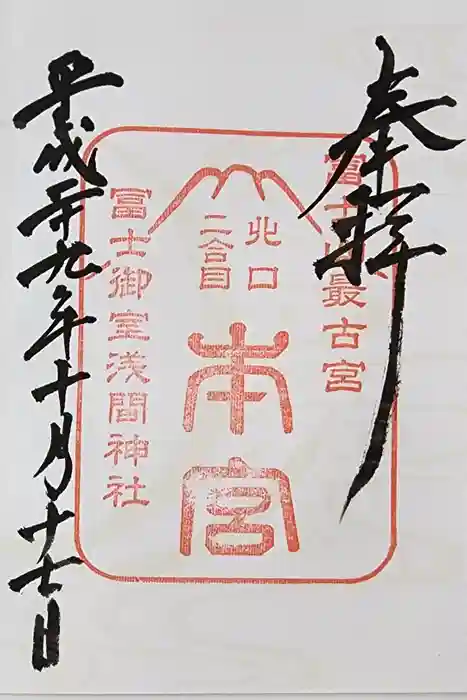 奉拝
富士山最古宮
北口
二合目
本宮
冨士御室浅間神社
平成廿九年十月十七日